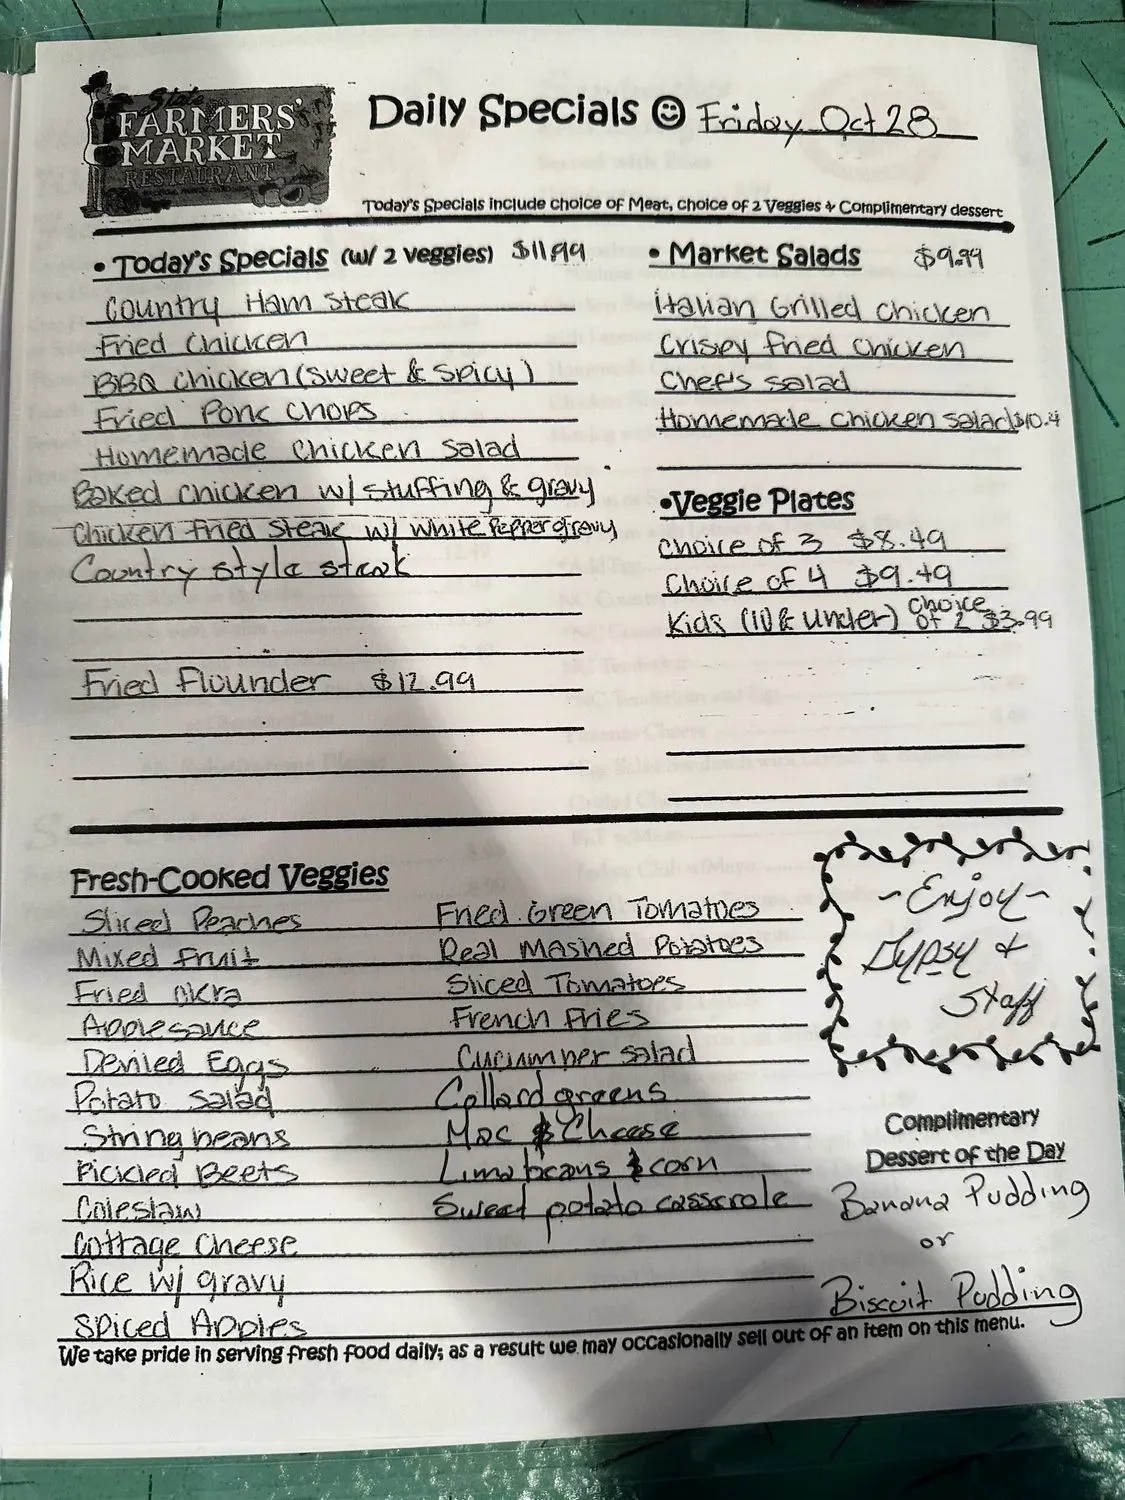 State
FARMERS'
MARKET
RESTAURANT
Daily Specials ☺ Friday Oct 28
Today's Specials include choice of Meat, choice of 2 Veggies & Complimentary dessert
• Today's Specials (w/ 2 veggies) $11.99
Country Ham Steak
Fried Chicken
BBQ Chicken (Sweet & Spicy)
Fried Pork Chops
Homemade Chicken Salad
Baked Chicken w/ stuffing & gravy
Chicken Fried Steak w/ White Pepper gravy
Country style steak
Fried Flounder $12.99
• Market Salads $9.99
Italian Grilled Chicken
Crispy Fried Chicken
Chef's salad
Homemade Chicken Salad $10.4
• Veggie Plates
Choice of 3 $8.49
Choice of 4 $9.49
Kids (10 & under) choice of 2 $3.99
Fresh-Cooked Veggies
Sliced Peaches
Mixed Fruit
Fried Okra
Applesauce
Deviled Eggs
Potato Salad
String beans
Pickled Beets
Coleslaw
Cottage Cheese
Rice w/ gravy
Spiced Apples
Fried Green Tomatoes
Real Mashed Potatoes
Sliced Tomatoes
French Fries
Cucumber Salad
Collard greens
Mac & Cheese
Lima beans & corn
Sweet potato casserole
~Enjoy~
Gypsy &
Staff
Complimentary
Dessert of the Day
Banana Pudding
or
Biscuit Pudding
We take pride in serving fresh food daily; as a result we may occasionally sell out of an item on this menu.